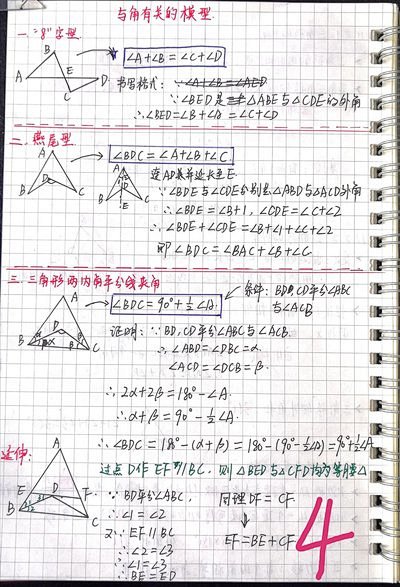 与角有关的模型.
一."8"字型.
B
E
A
D.
C
∠A+∠B=∠C+∠D
书写格式:
∵∠BED是 △ABE与△CDE的外角
∴∠BED=∠B+∠A=∠C+∠D
二.燕尾型.
A
D
B
C
∠BDC=∠A+∠B+∠C.
A
D
B
C
E
连AD并延长至E
∵∠BDE与∠CDE分别是△ABD与△ACD外角
∴∠BDE=∠B+∠1, ∠CDE=∠C+∠2
∴∠BDE+∠CDE=∠B+∠1+∠C+∠2
即∠BDC=∠BAC+∠B+∠C.
三.三角形两内角平分线夹角
A
D
B
C
∠BDC=90°+½∠A.
条件: BD,CD平分∠ABC
与∠ACB
证明: ∵BD,CD平分∠ABC与∠ACB.
∴∠ABD=∠DBC=α.
∠ACD=∠DCB=β.
∴2α+2β=180°-∠A.
∴α+β=90°-½∠A.
∴∠BDC=180°-(α+β)=180°-(90°-½∠A)=90°+½∠A
延伸:
过点D作EF∥BC,则△BED与△CFD均为等腰△
A
E
D
F
B
C
∵BD平分∠ABC,
∴∠1=∠2
又∵EF∥BC
∴∠2=∠3
∴∠1=∠3
∴BE=ED
同理DF=CF
↓
EF=BE+CF
4